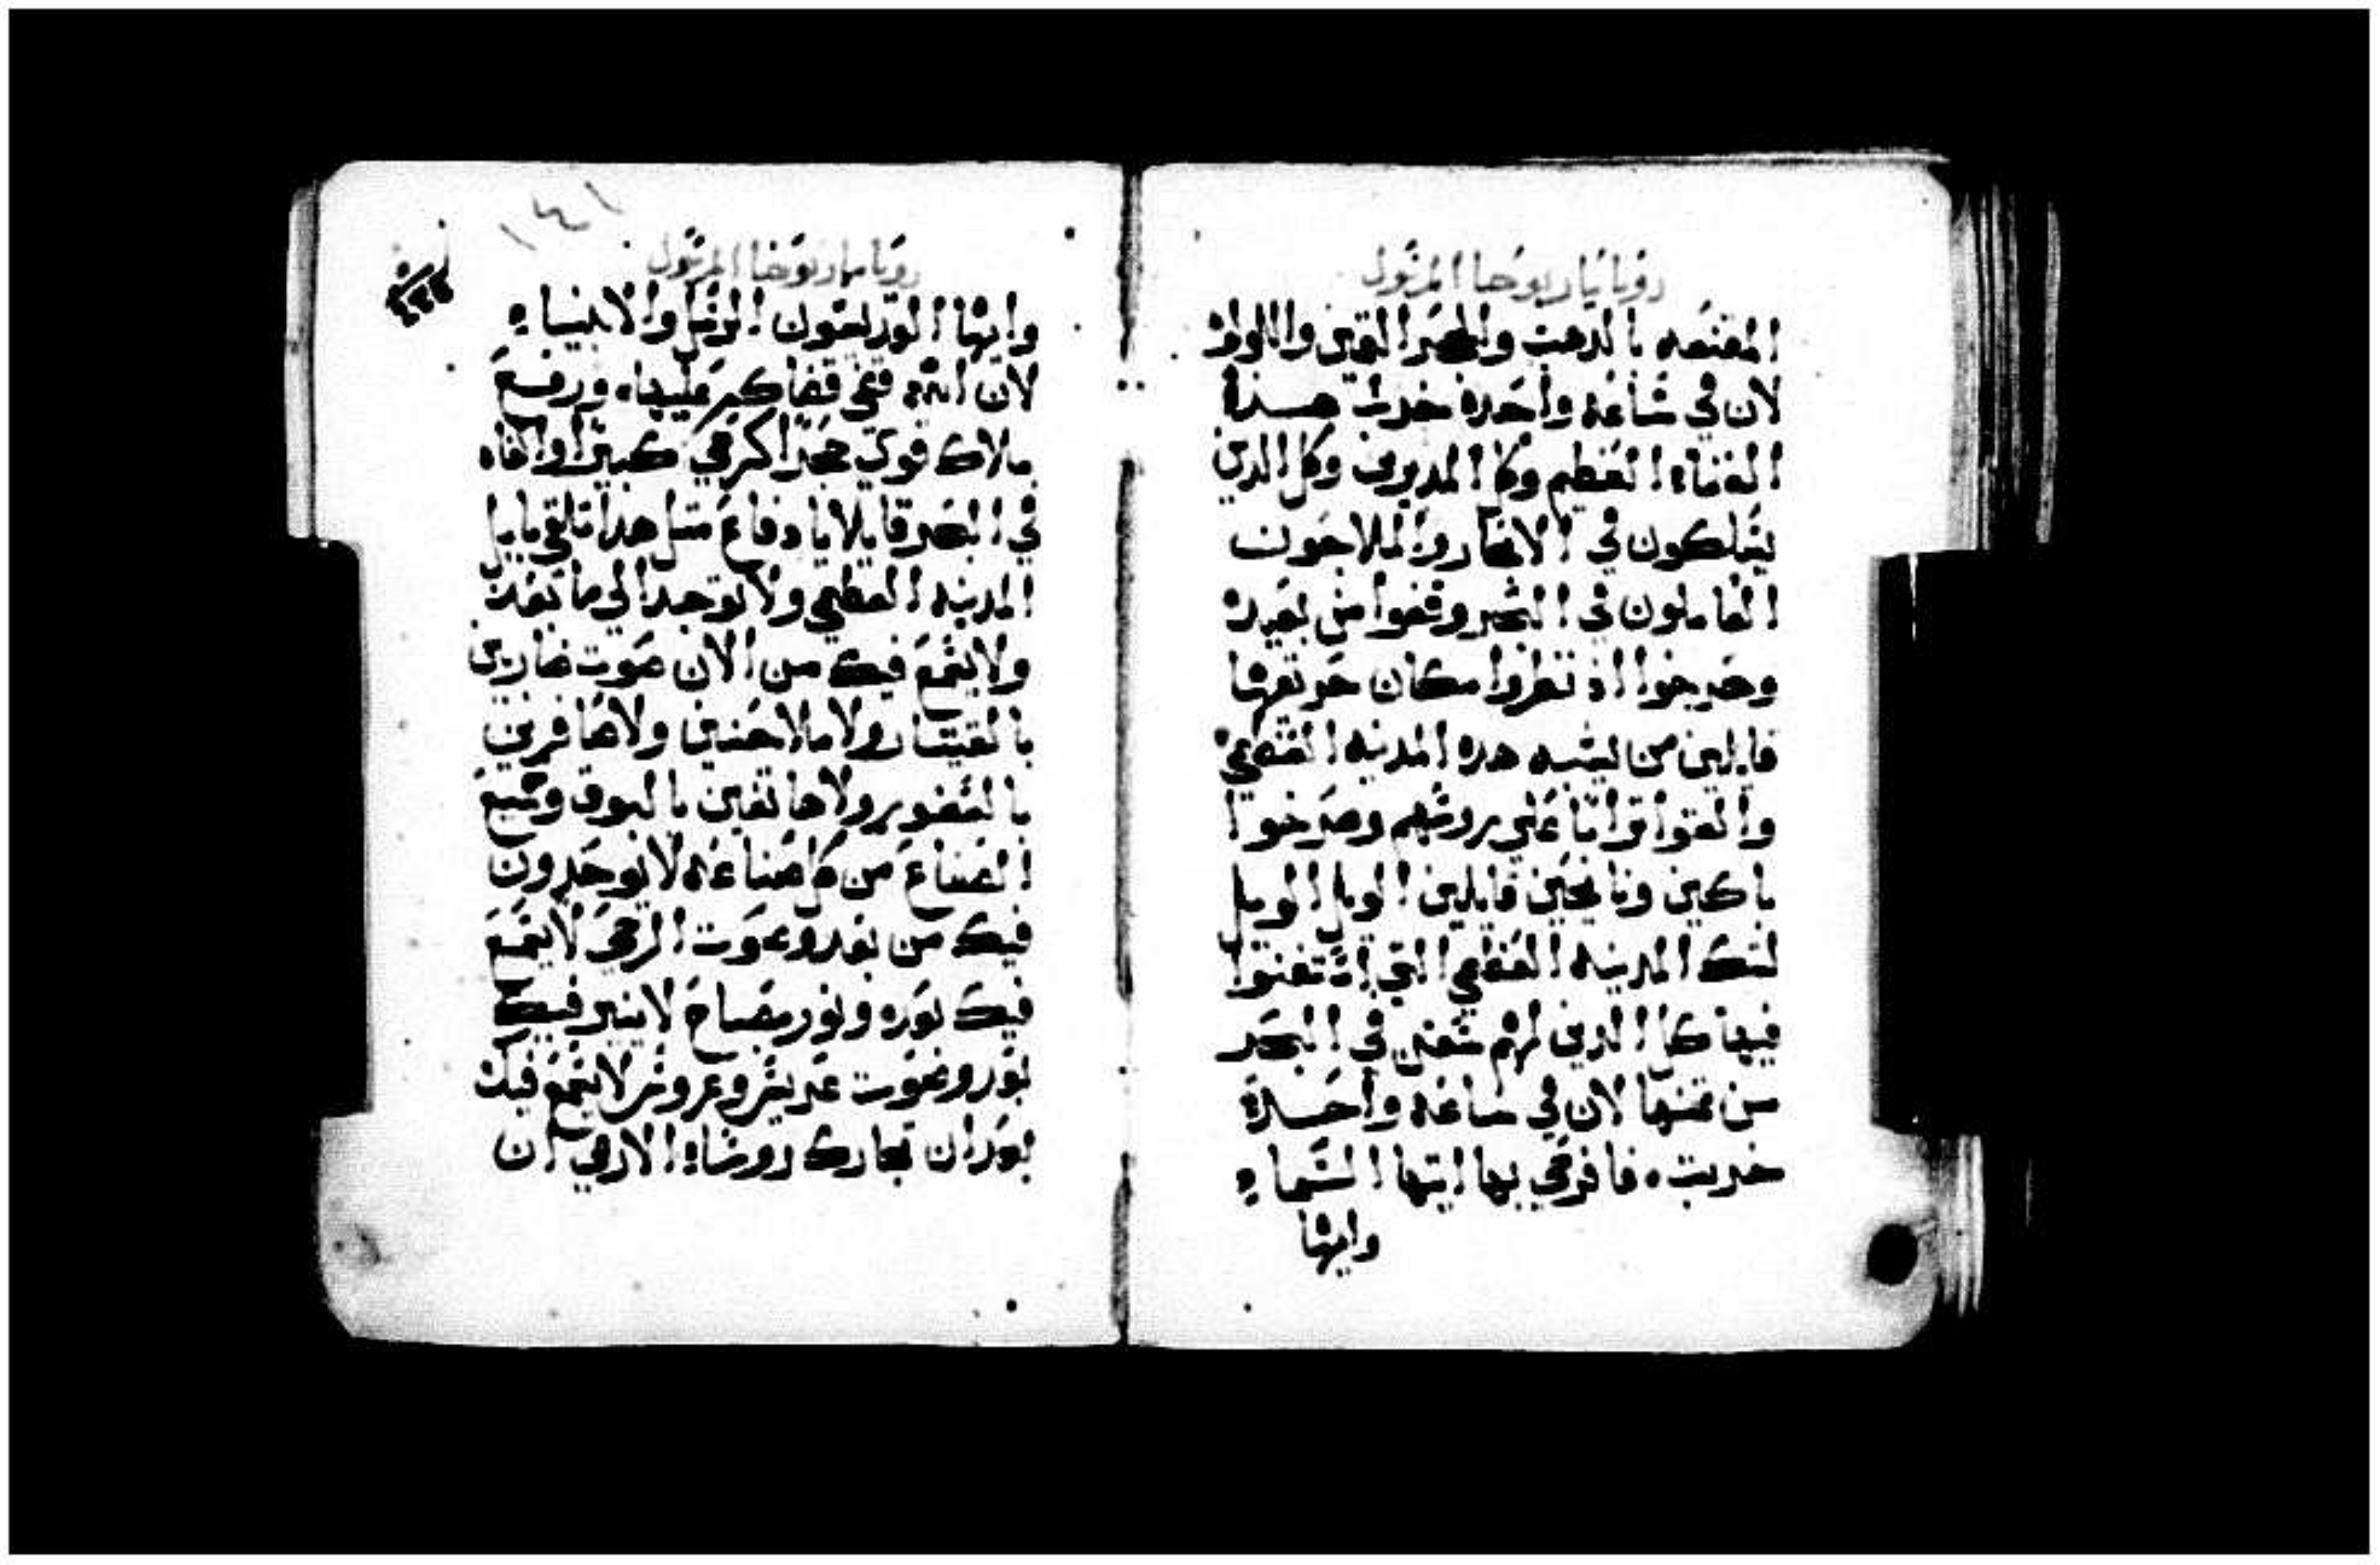 رويا مار يوحنا الرسول
المقتصه بالدهب والحجر الثمين واللولو
لان في ساعه واحده خربت هده
الغناء العظيم وكل المدبرين وكل الدين
يسلكون في الانهار والملاحون
العاملون في البحر وقفوا من بعيد
وصرخوا اذ نظروا مكان حريقها
قايلين من يشبه هده المدينه العظمي
والقوا ترابا علي روسهم وصرخوا
باكين ونايحين قايلين الويل الويل
لتلك المدينه العظمي التي استغنوا
فيها كل الدين لهم سفن في البحر
من ثمنها لان في ساعه واحده
خربت. فافرحي بها ايتها السماء
وايها
١٤١
رويا مار يوحنا الرسول
وايها القديسون الرسل والانبياء
لان الله قضي قضاكم عليها. ورفع
ملاك قوي حجرا كرحي كبيرا والقاه
في البحر قايلا بادفاع متل هدا تلقي بابل
المدينه العظمي ولا توجد الي ما بعد
ولا يسمع فيك من الان صوت ضاربين
بالقيتار ولا ملاحنين ولا صافرين
بالصفور ولا هاتفين بالبوق وجميع
الصناع من كل صناعه لا يوجدون
فيك من بعد وصوت الرحي لا يسمع
فيك بعد ونور مصباح لا ينير فيك
بعد وصوت عريس وعروس لا يسمع فيك
بعد ان تجارك روساء الارض ان